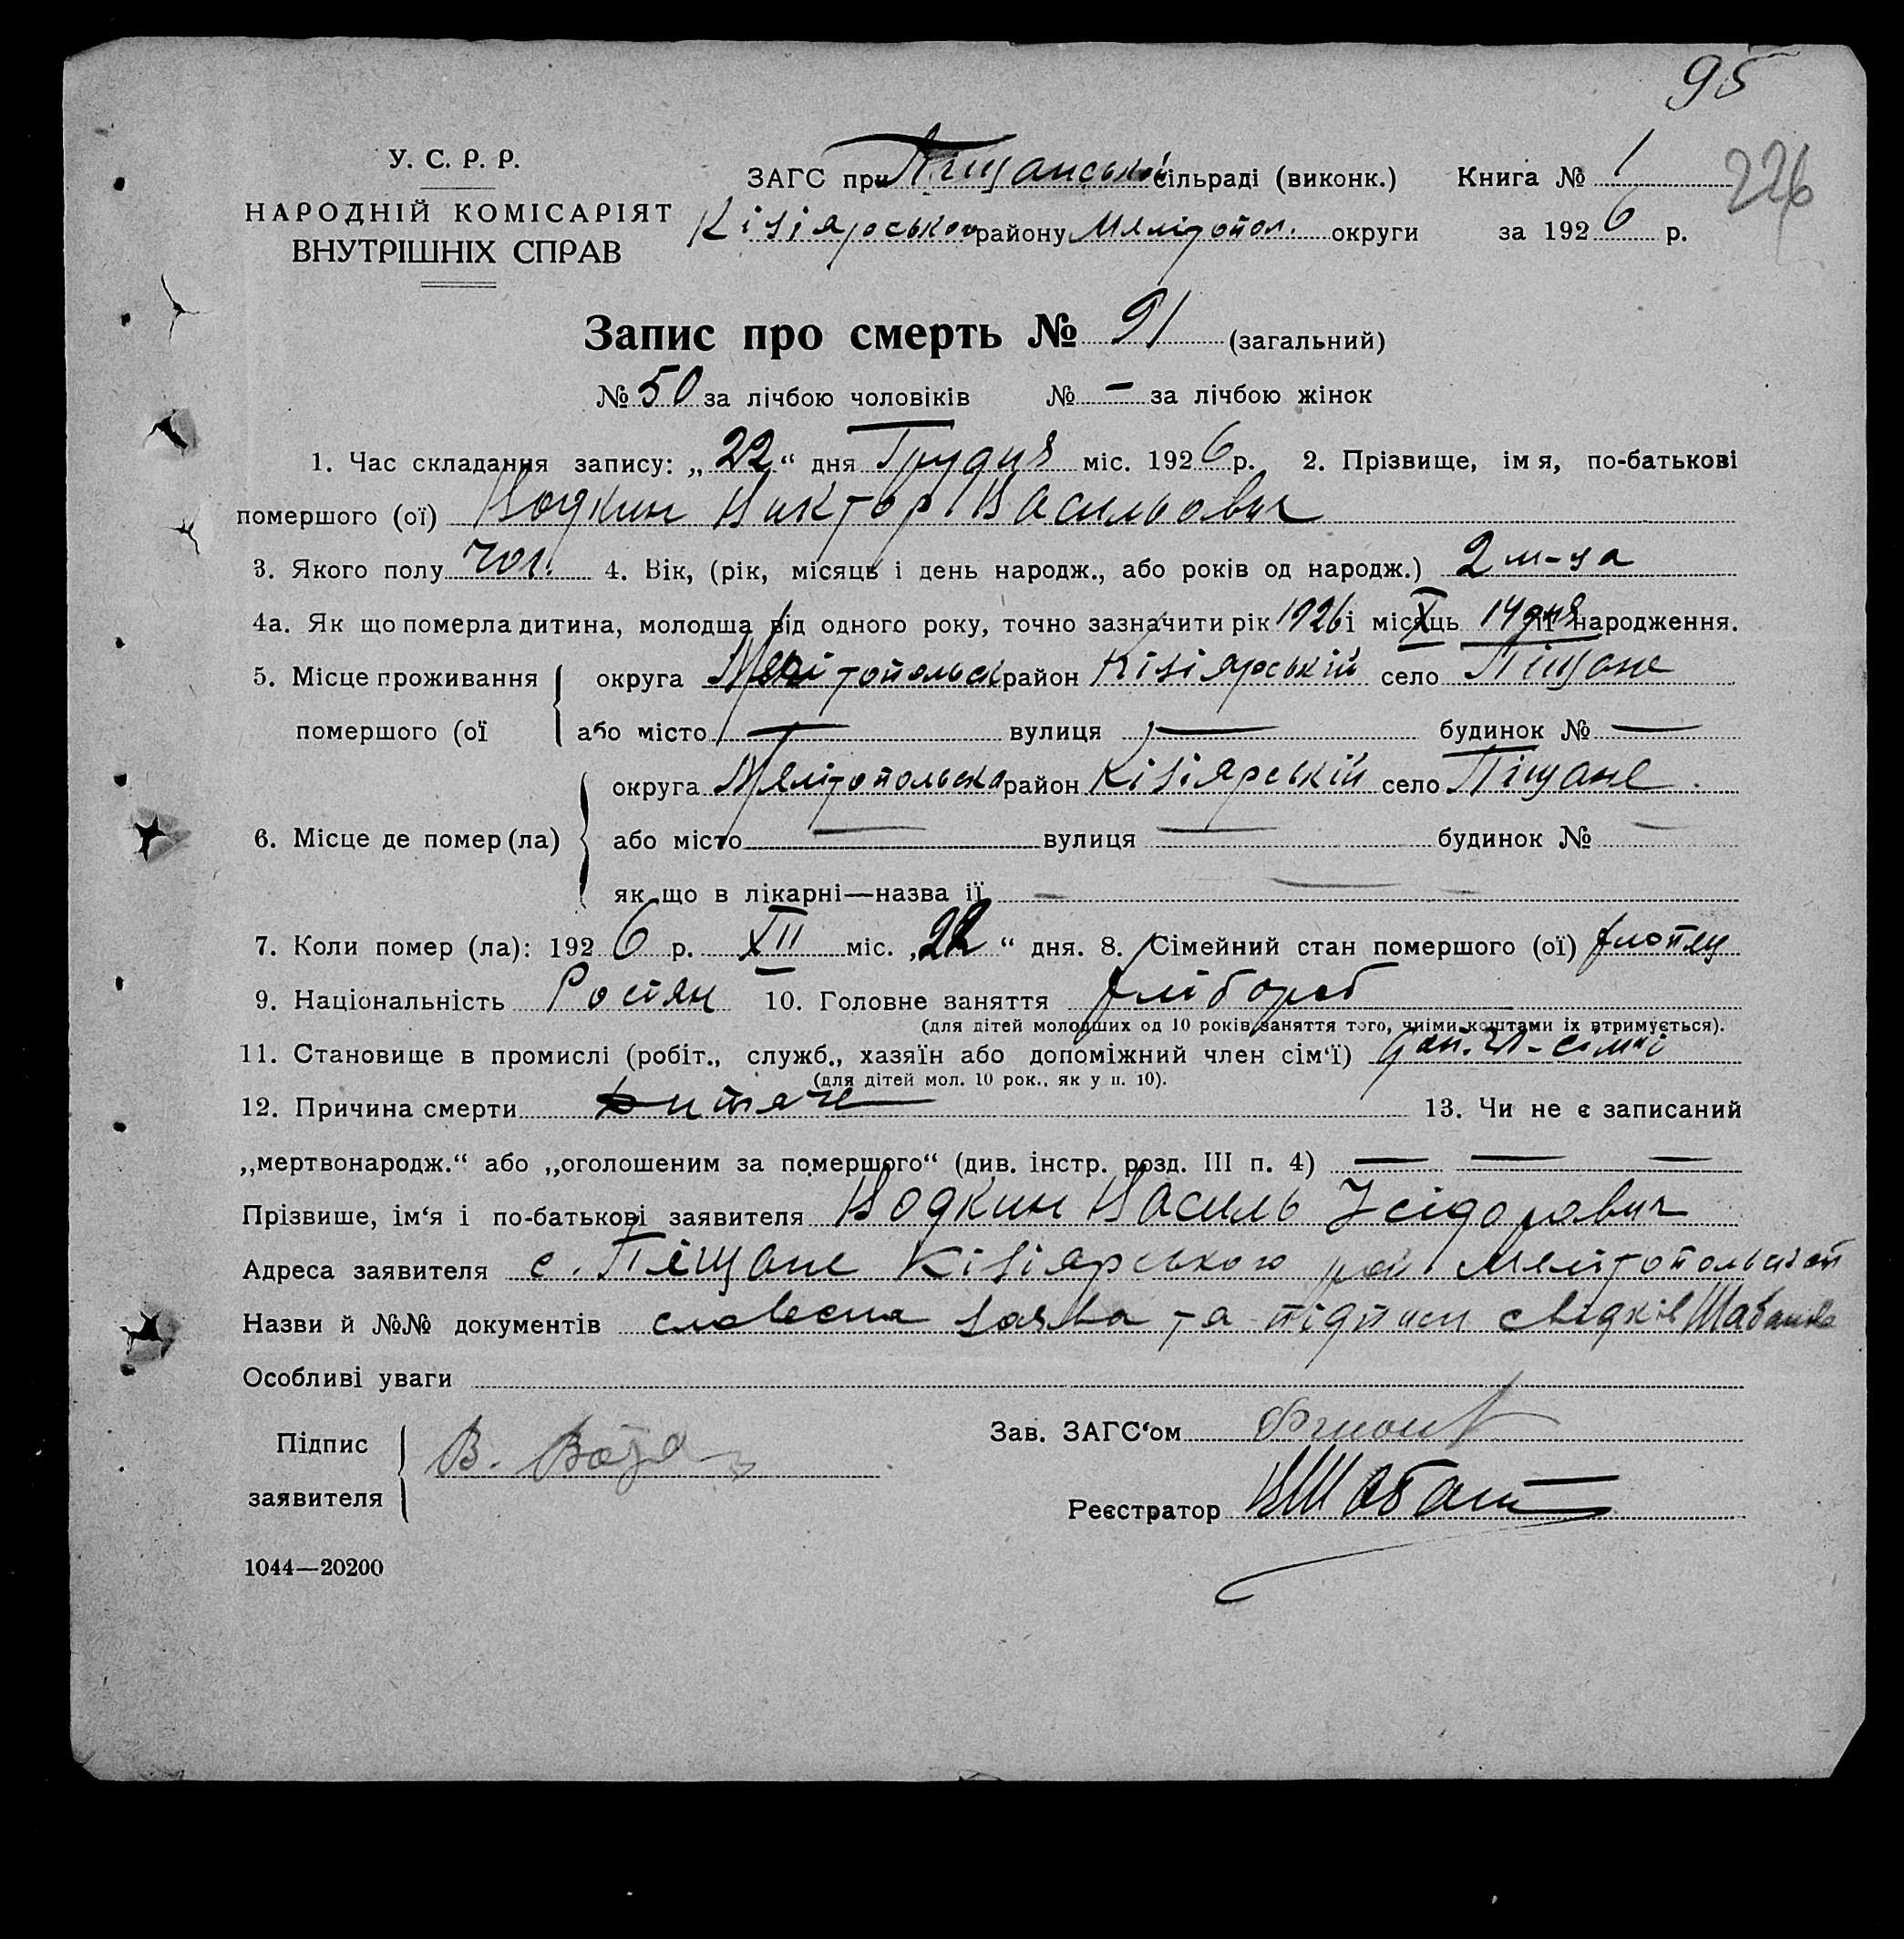 95
У. С. Р. Р.
НАРОДНІЙ КОМІСАРІЯТ
ВНУТРІШНІХ СПРАВ
ЗАГС при Піщанській сільраді (виконк.) Книга № 1 226
Кізіярського району Мелітопол. округи за 1926 р.
Запис про смерть № 91 (загальний)
№ 50 за лічбою чоловіків № — за лічбою жінок
1. Час складання запису: „22“ дня Грудня міс. 1926 р. 2. Прізвище, ім я, по-батькові
помершого (ої) Водкин Виктор Васильович
3. Якого полу чол. 4. Вік, (рік, місяць і день народж., або років од народж.) 2 м-ца
4а. Як що померла дитина, молодша від одного року, точно зазначити рік 1926 і місяць X 14 дня народження.
5. Місце проживання округа Мелітопольск район Кізіярській село Піщане
помершого (ої або місто — вулиця — будинок № —
6. Місце де помер (ла) округа Мелітопольска район Кізіярській село Піщане.
або місто — вулиця — будинок № —
як що в лікарні—назва її —
7. Коли помер (ла): 1926 р. XII міс. „22“ дня. 8. Сімейний стан помершого (ої) хлопец
9. Національність Росіян 10. Головне заняття хлібороб
(для дітей молодших од 10 років, заняття того, чиіми коштами їх втримується).
11. Становище в промислі (робіт., служб., хазяїн або допоміжний член сім‘ї) доп. чл. сім'ї
(для дітей мол. 10 рок., як у п. 10).
12. Причина смерти дитяче 13. Чи не є записаний
„мертвонародж.“ або „оголошеним за помершого“ (див. інстр. розд. III п. 4) — — —
Прізвише, ім‘я і по-батькові заявителя Водкин Василь Ісідорович
Адреса заявителя с. Піщане Кізіярського рай Мелітопольскої
Назви й №№ документів словесна заява та підписи свідків Шабанова
Особливі уваги
Підпис
заявителя В.
Зав. ЗАГС‘ом
Реєстратор
1044—20200